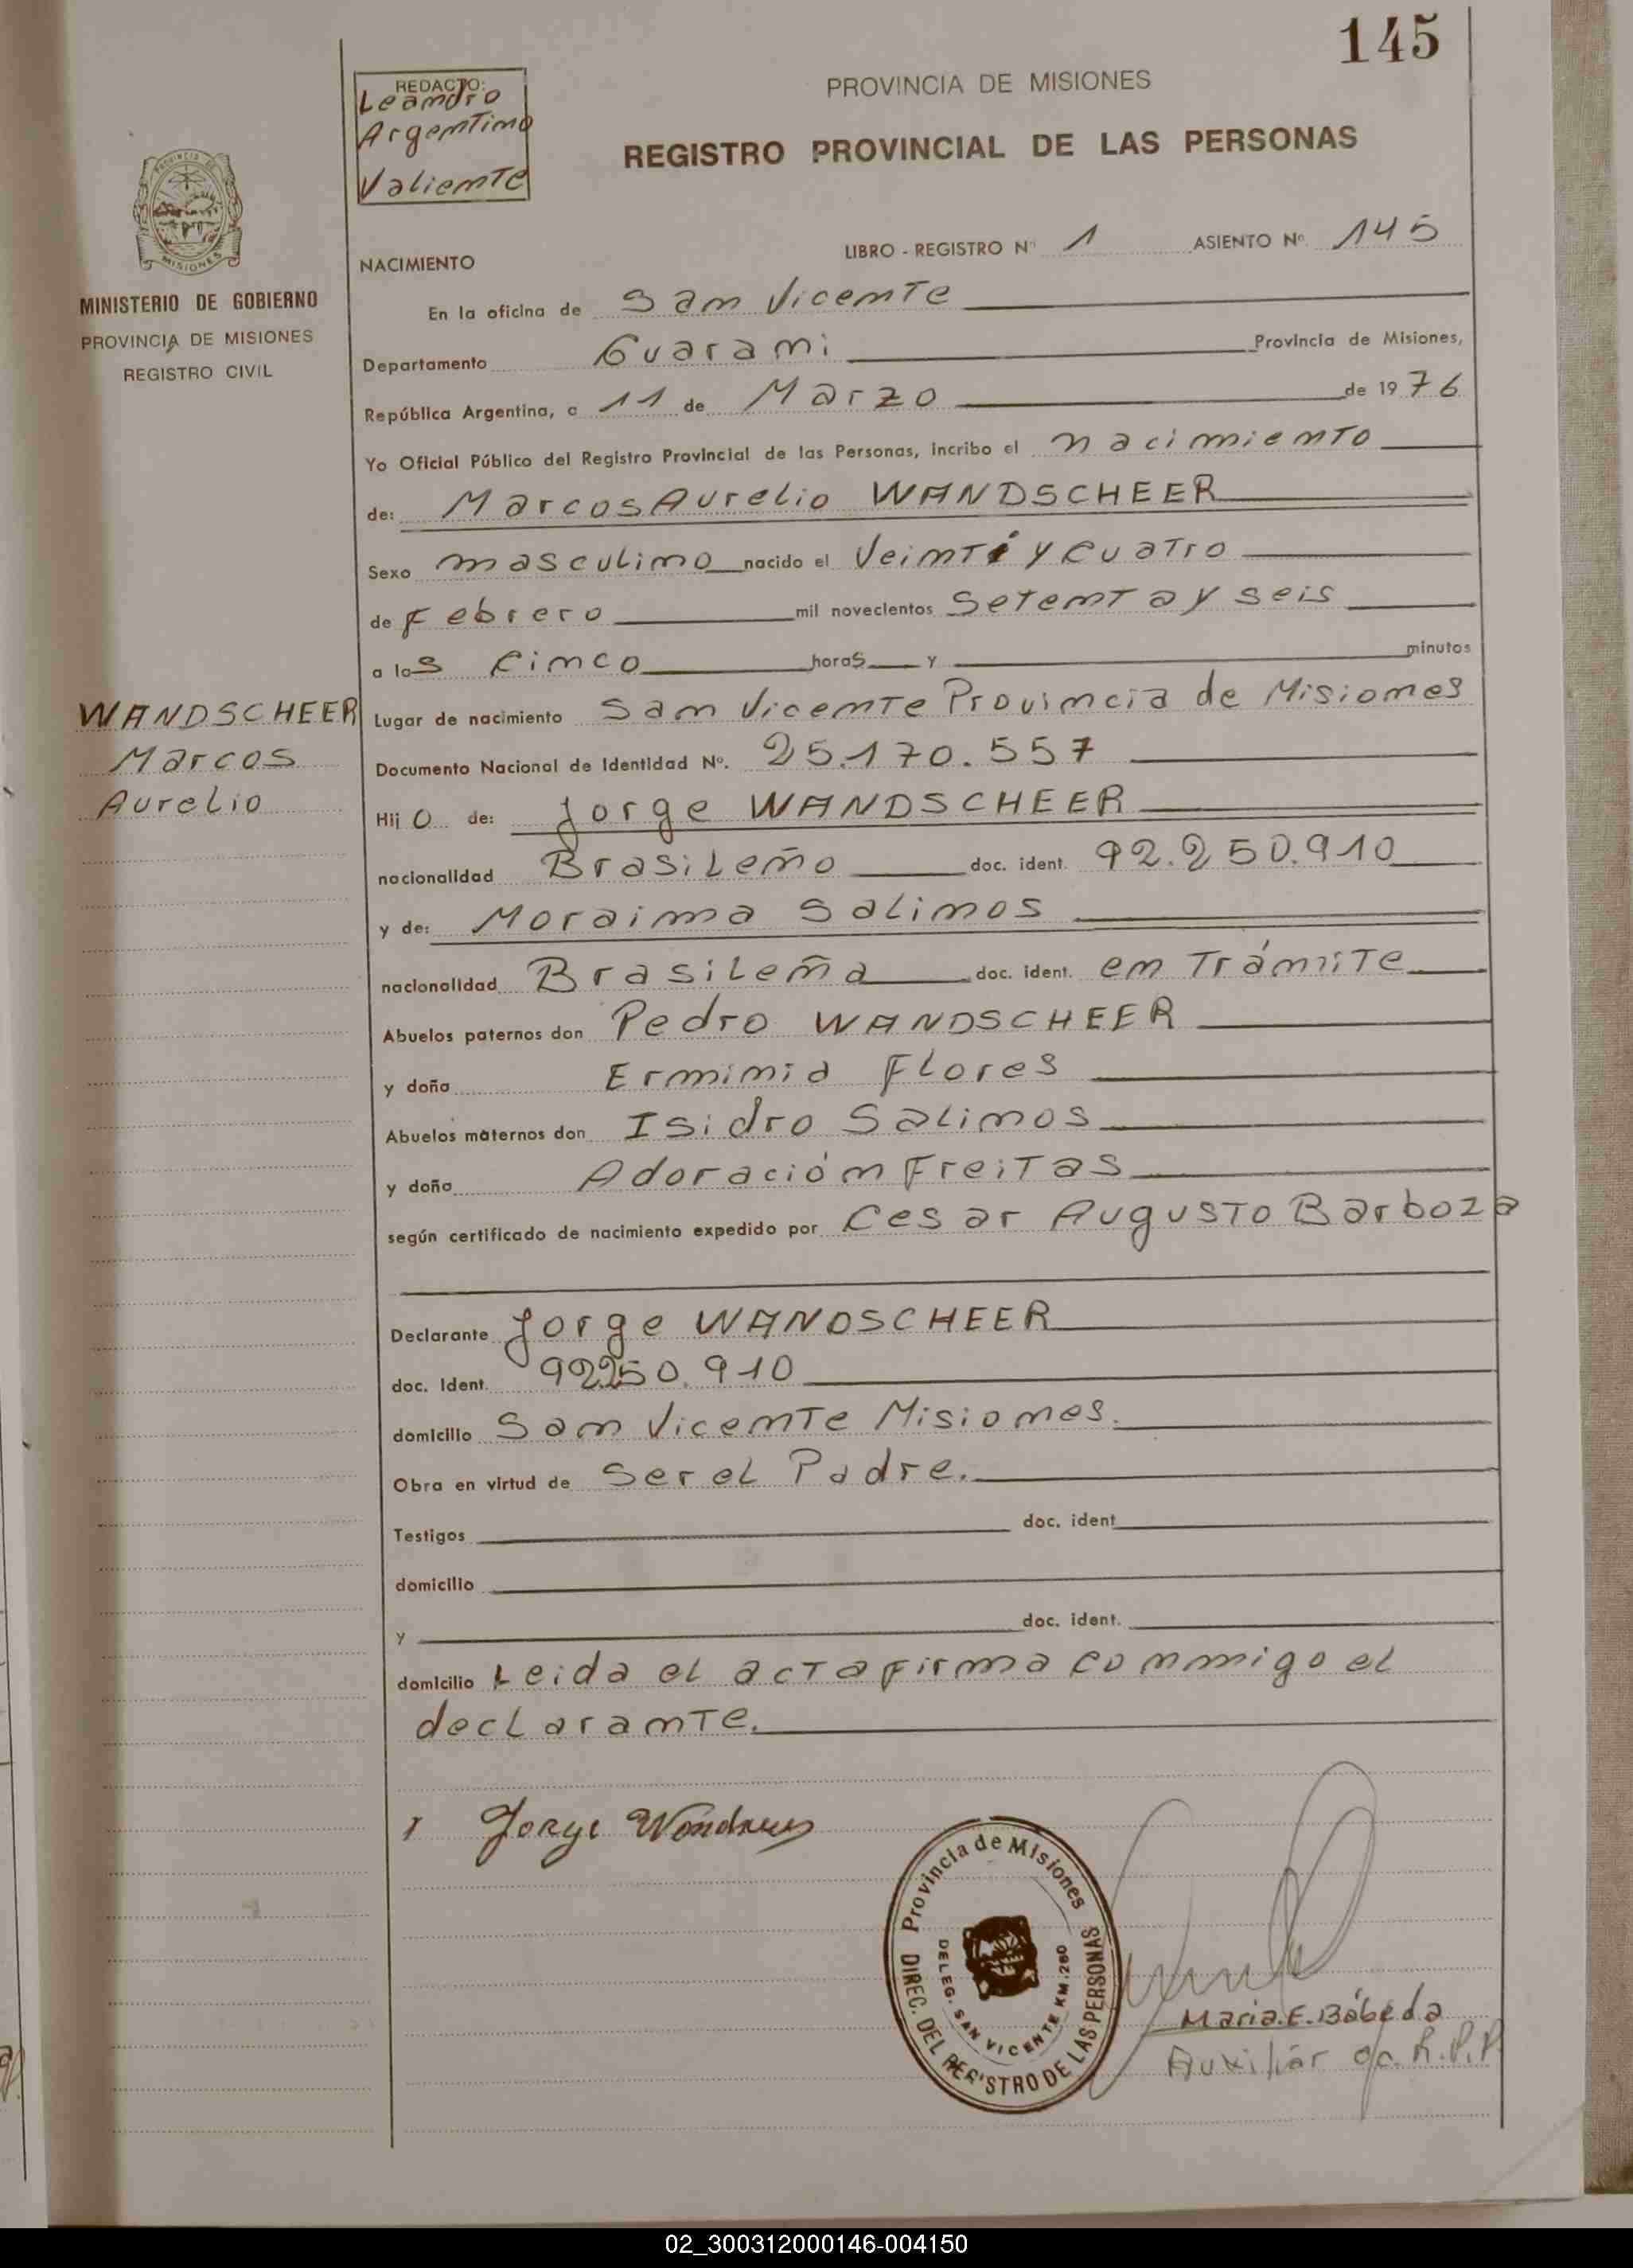 145
REDACTO:
Leandro
Argentino
Valiente
PROVINCIA DE MISIONES
REGISTRO PROVINCIAL DE LAS PERSONAS
PROVINCIA DE
MISIONES
MINISTERIO DE GOBIERNO
PROVINCIA DE MISIONES
REGISTRO CIVIL
LIBRO - REGISTRO Nº 1 ASIENTO Nº 145
NACIMIENTO
En la oficina de San Vicente
Departamento Guarani Provincia de Misiones,
República Argentina, a 11 de Marzo de 1976
Yo Oficial Público del Registro Provincial de las Personas, incribo el nacimiento
de: Marcos Aurelio WANDSCHEER
Sexo masculino nacido el Veinti y cuatro
de Febrero mil novecientos Setenta y seis
a las cinco horas y minutos
WANDSCHEER
Marcos
Aurelio
Lugar de nacimiento San Vicente Provincia de Misiones
Documento Nacional de Identidad Nº. 25.170.557
Hijo de: Jorge WANDSCHEER
nacionalidad Brasileño doc. ident. 92.250.910
y de: Moraima Salinos
nacionalidad Brasileña doc. ident. en Trámite
Abuelos paternos don Pedro WANDSCHEER
y doña Erminia Flores
Abuelos maternos don Isidro Salinos
y doña Adoración Freitas
según certificado de nacimiento expedido por Cesar Augusto Barboza
Declarante Jorge WANDSCHEER
doc. Ident. 92250.910
domicilio San Vicente Misiones.
Obra en virtud de Ser el Padre.
Testigos doc. ident
domicilio
y doc. ident.
domicilio Leida el acta firma conmigo el
declarante.
Jorge
Provincia de Misiones
DIREC. DEL REGISTRO DE LAS PERSONAS
DELEG. SAN VICENTE KM.260
Maria.E.Bóbeda
Auxiliar R.P.P.
02_300312000146-004150